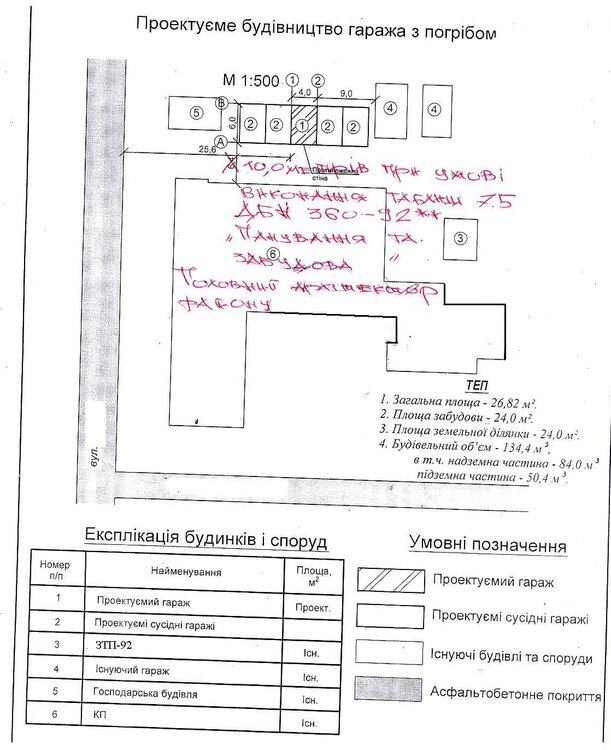 Проектуєме будівництво гаража з погрібом
М 1:500
1 2
4,0 9,0
В
5 2 2 1 2 2 4 4
6,0
А
25,6
стіна
10,0 метрів при умові
виконання таблиці 7.5
ДБН 360-92**
„Планування та
забудова"
Головний архітектор
району
6
3
вул.
ТЕП
1. Загальна площа - 26,82 м².
2. Площа забудови - 24,0 м².
3. Площа земельної ділянки - 24,0 м².
4. Будівельний об'єм - 134,4 м³,
в т.ч. надземна частина - 84,0 м³
підземна частина - 50,4 м³.
Експлікація будинків і споруд
Номер п/п Найменування Площа, м²
1 Проектуємий гараж Проект.
2 Проектуємі сусідні гаражі
3 ЗТП-92 Існ.
4 Існуючий гараж Існ.
5 Господарська будівля Існ.
6 КП Існ.
Умовні позначення
Проектуємий гараж
Проектуємі сусідні гаражі
Існуючі будівлі та споруди
Асфальтобетонне покриття